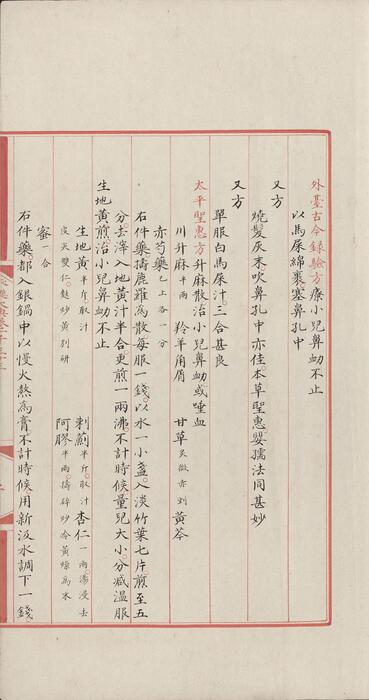 外臺古今録驗方療小兒鼻衂不止
以馬屎綿裹塞鼻孔中
又方
燒髪灰末吹鼻孔中亦佳本草聖惠嬰孺法同甚妙
又方
單服白馬屎汁三合甚良
太平聖惠方升麻散治小兒鼻衂或唾血
川升麻半兩 羚羊角屑 甘草炙微赤剉 黄芩
赤芍藥已上各一分
右件藥擣麄羅為散每服一錢以水一小盞入淡竹葉七片煎至五
分去滓入地黄汁半合更煎一兩沸不計時候量兒大小分减温服
生地黄煎治小兒鼻衂不止
生地黄半斤取汁 刺薊半斤取汁 杏仁一兩湯浸去
皮尖雙仁麩炒黄别研 阿膠半兩擣碎炒令黄燥為末
蜜一合
右件藥都入銀鍋中以慢火熬為膏不計時候用新汲水調下一錢